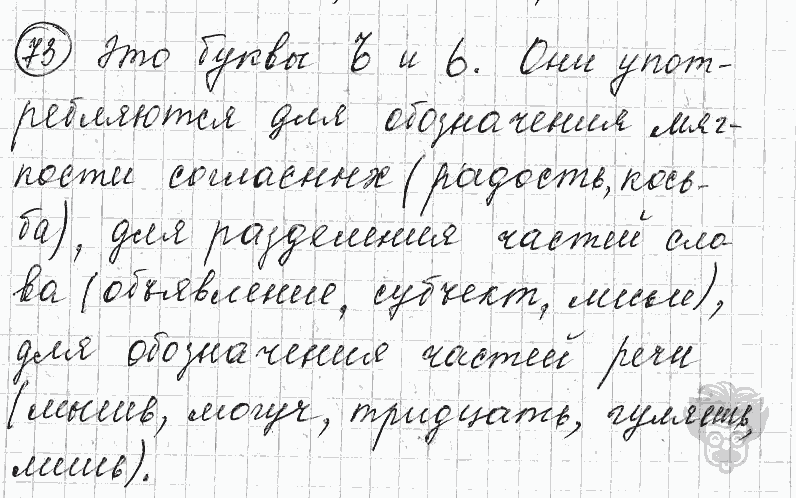 73 Это буквы Ъ и Ь. Они упот-
ребляются для обозначения мяг-
кости согласных (радость, кось-
ба), для разделения частей сло
ва (объявление, субъект, лисьи),
для обозначения частей речи
(мышь, могуч, тридцать, гуляешь,
лишь).